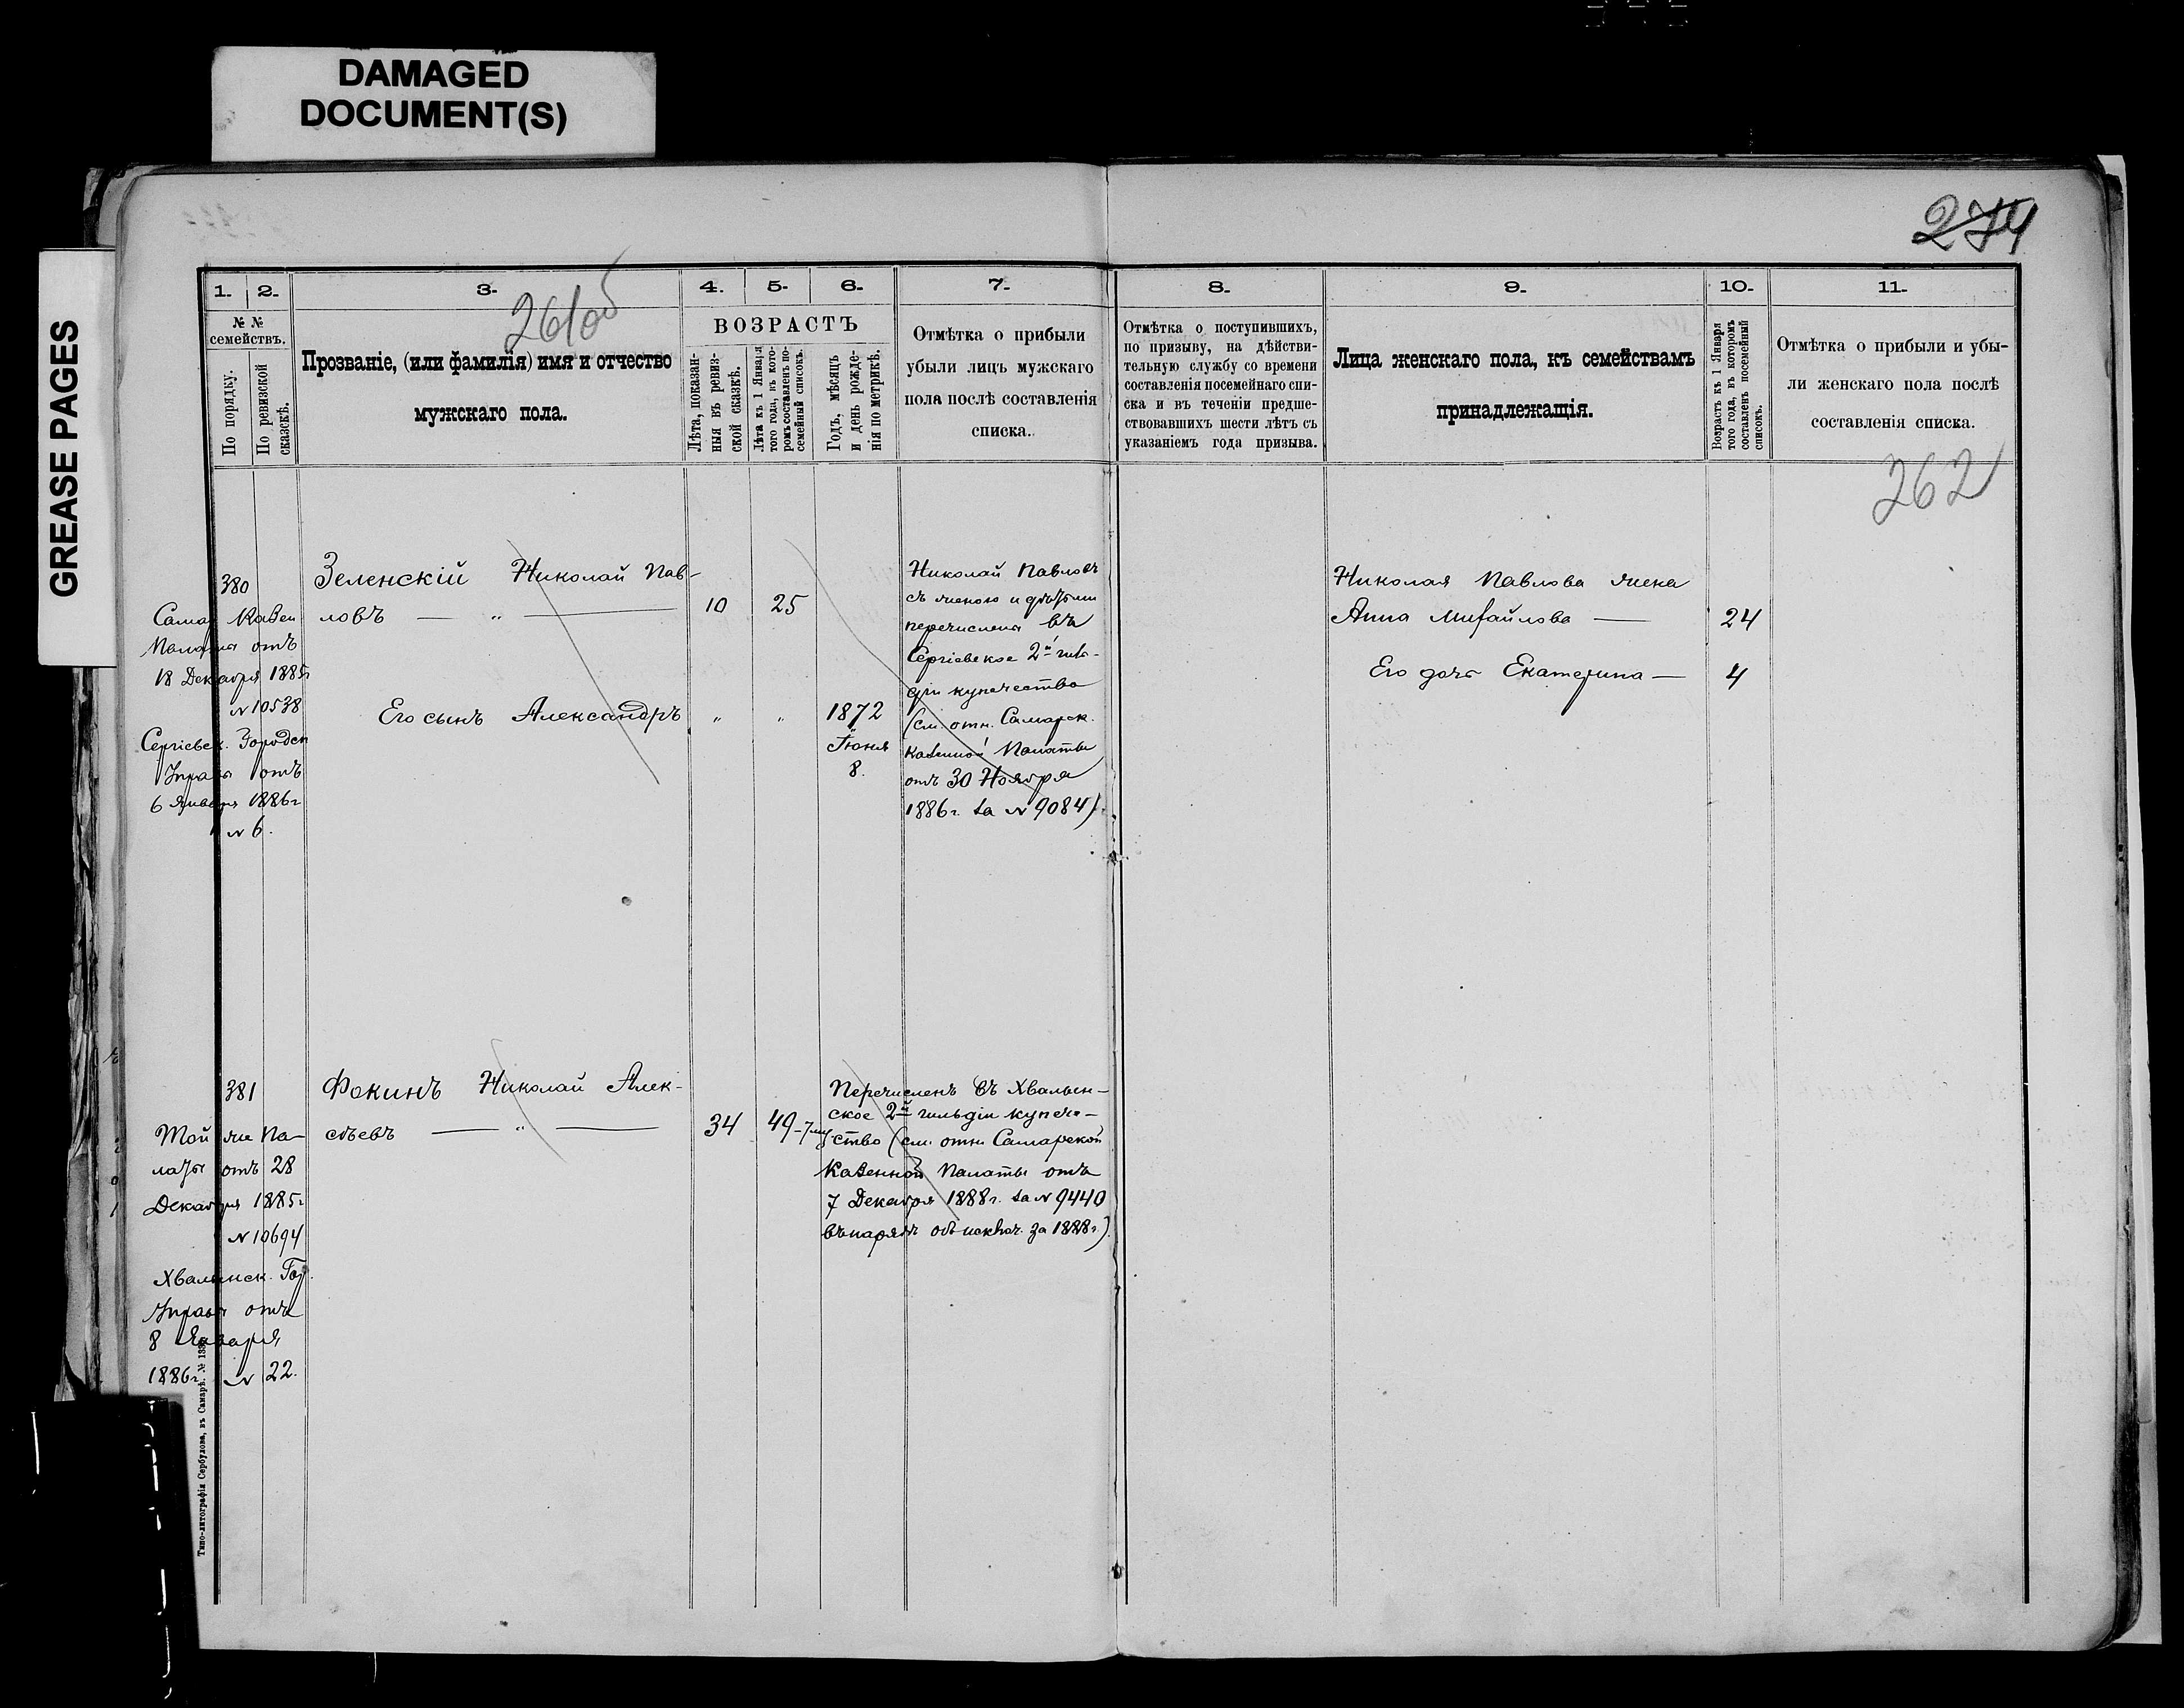 DAMAGED
DOCUMENT(S)
GREASE PAGES
274
261об
1.
2.
3.
4.
5.
6.
7.
8.
9.
10.
11.
№ №
семействъ.
По порядку.
По ревизской
сказкѣ.
Прозваніе, (или фамилія) имя и отчество
мужскаго пола.
ВОЗРАСТЪ
Лѣта, показан-
ныя въ ревиз-
ской сказкѣ.
Лѣта къ 1 Января
того года, въ кото-
ромъ составленъ по-
семейный списокъ.
Годъ, мѣсяцъ
и день рожде-
нія по метрикѣ.
Отмѣтка о прибыли
убыли лицъ мужскаго
пола послѣ составленія
списка.
Отмѣтка о поступившихъ,
по призыву, на дѣйстви-
тельную службу со времени
составленія посемейнаго спи-
ска и въ теченіи предше-
ствовавшихъ шести лѣтъ съ
указаніемъ года призыва.
Лица женскаго пола, къ семействамъ
принадлежащія.
Возрастъ къ 1 Января
того года, въ которомъ
составленъ посемейный
списокъ.
Отмѣтка о прибыли и убы-
ли женскаго пола послѣ
составленія списка.
262
380
Самар Казен
Палаты отъ
18 Декабря 1885г
№ 10538
Сергіевск. Городск
Управы отъ
6 Января 1886г
№ 6.
Зеленскій Николай Пав-
ловъ — " —
10
25
Его сынъ Александръ
"
"
1872
Іюня
8.
Николай Павловъ
съ женою и дѣтьми
перечислены въ
Сергіевское 2й гиль-
діи купечество
(см. отн. Самарск.
Казенной Палаты
отъ 30 Ноября
1886г. за № 9084).
Николая Павлова жена
Анна Михайлова —
24
Его дочь Екатерина —
4
381
Той же Па-
латы отъ 28
Декабря 1885г
№ 10694
Хвалынск. Гор.
Управы отъ
8 Января
1886г. № 22.
Фокинъ Николай Алек-
сѣевъ — " —
34
49
Перечисленъ въ Хвалын-
ское 2й гильдіи купече-
ство (см. отн. Самарской
Казенной Палаты отъ
7 Декабря 1888г. за № 9440
въ нарядѣ объ исключ. за 1888г.).
Типо-литографія Сербулова, въ Самарѣ. №